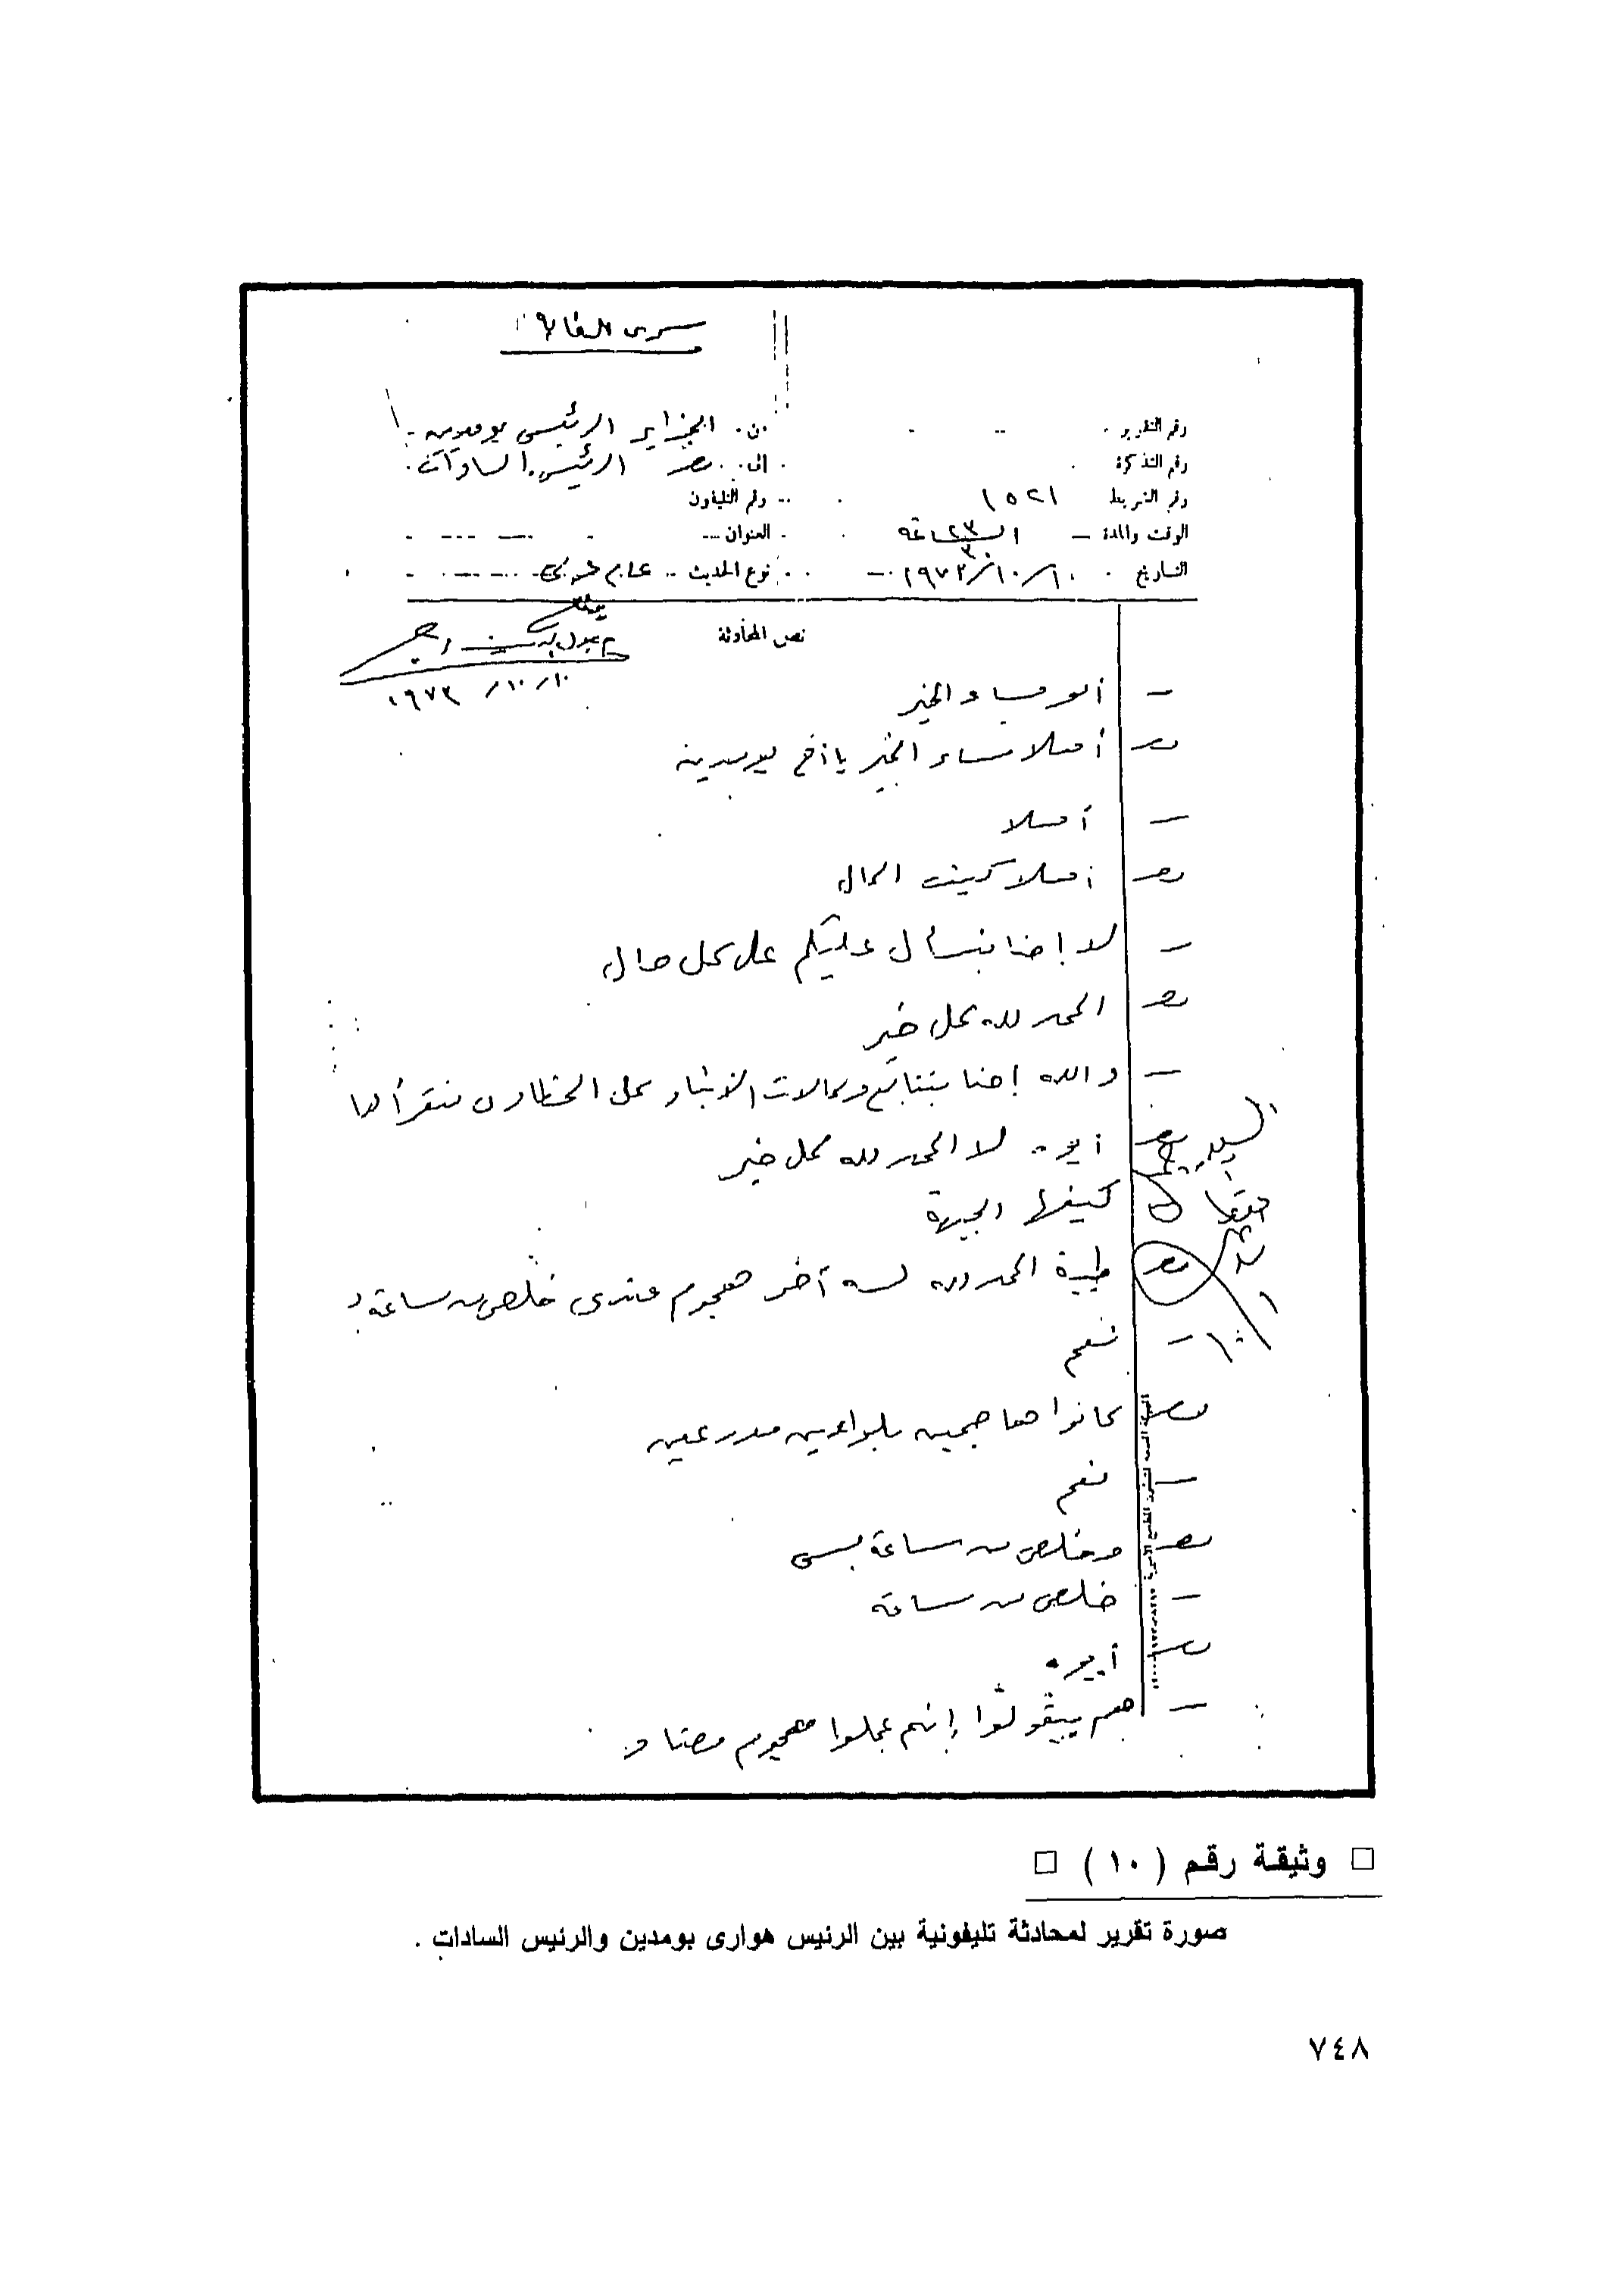 سرى للغاية
رقم التقرير
من الجزاير الرئيس بومدين
رقم التذكرة
الى مصر الرئيس السادات
رقم الشريط ١٥٢١
رقم التليفون
الوقت والمدة الساعة ٢٣٣٠
العنوان
التاريخ ١٠/١٠/١٩٧٣
نوع الحديث عام عربى
نص المحادثة
١٠/١٠/١٩٧٣
— ألو مساء الخير
مصر أهلا مساء الخير يا أخ بومدين
— أهلا
مصر أهلا كيف الحال
— لا إحنا بنسأل عليكم على كل حال
مصر الحمد لله بكل خير
— والله إحنا بنتابع وكالات الأنباء كل الخطاوى بنقرأ لها
مصر أيوه لا الحمد لله بكل خير
كيفها الجبهة
مصر طيبة الحمد لله لسه آخر هجوم عندى خلص من ساعة
— نعم
مصر كانوا هاجمين بلواءين مدرعين
— نعم
مصر وخلص من ساعة بس
— خلص من ساعة
مصر أيوه
— هم بيقولوا إنهم عملوا هجوم مضاد
□ وثيقة رقم ( ١٠ ) □
صورة تقرير لمحادثة تليفونية بين الرئيس هوارى بومدين والرئيس السادات .
٧٤٨